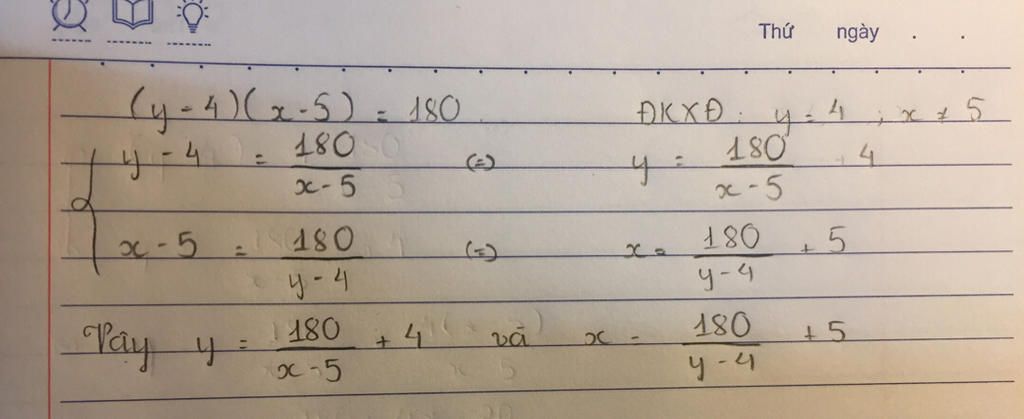 Thứ ngày . .
(y - 4)(x - 5) = 180 ĐKXĐ : y = 4 ; x ≠ 5
{ y - 4 = 180/(x - 5) (=) y = 180/(x - 5) + 4
x - 5 = 180/(y - 4) (=) x = 180/(y - 4) + 5
Vậy y = 180/(x - 5) + 4 và x = 180/(y - 4) + 5